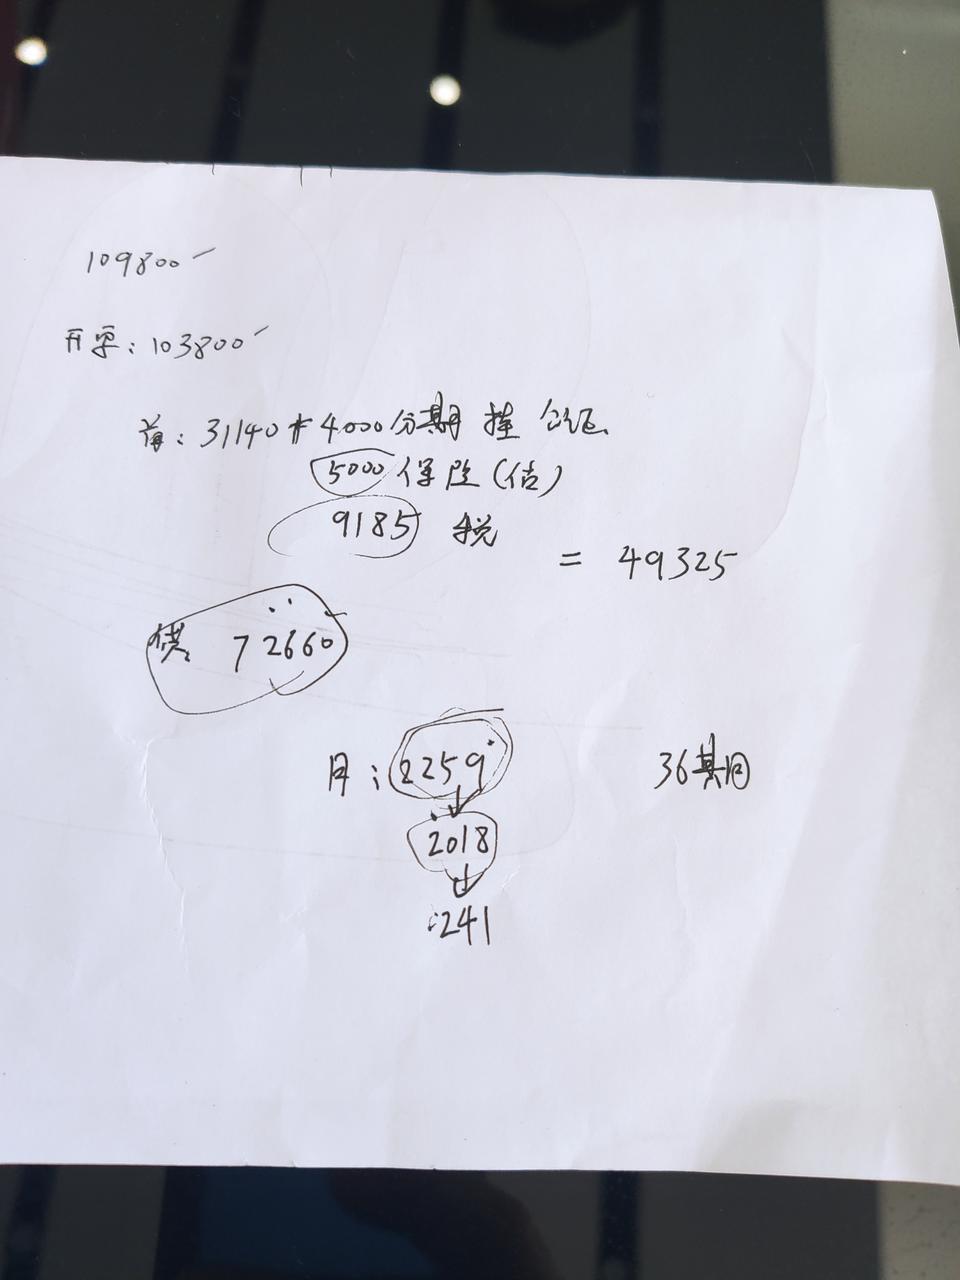 109800
开票: 103800
首: 31140 + 4000 分期 挂 公证
5000 保险(估)
9185 税
= 49325
供 72660
月: 2259 36期
2018
241